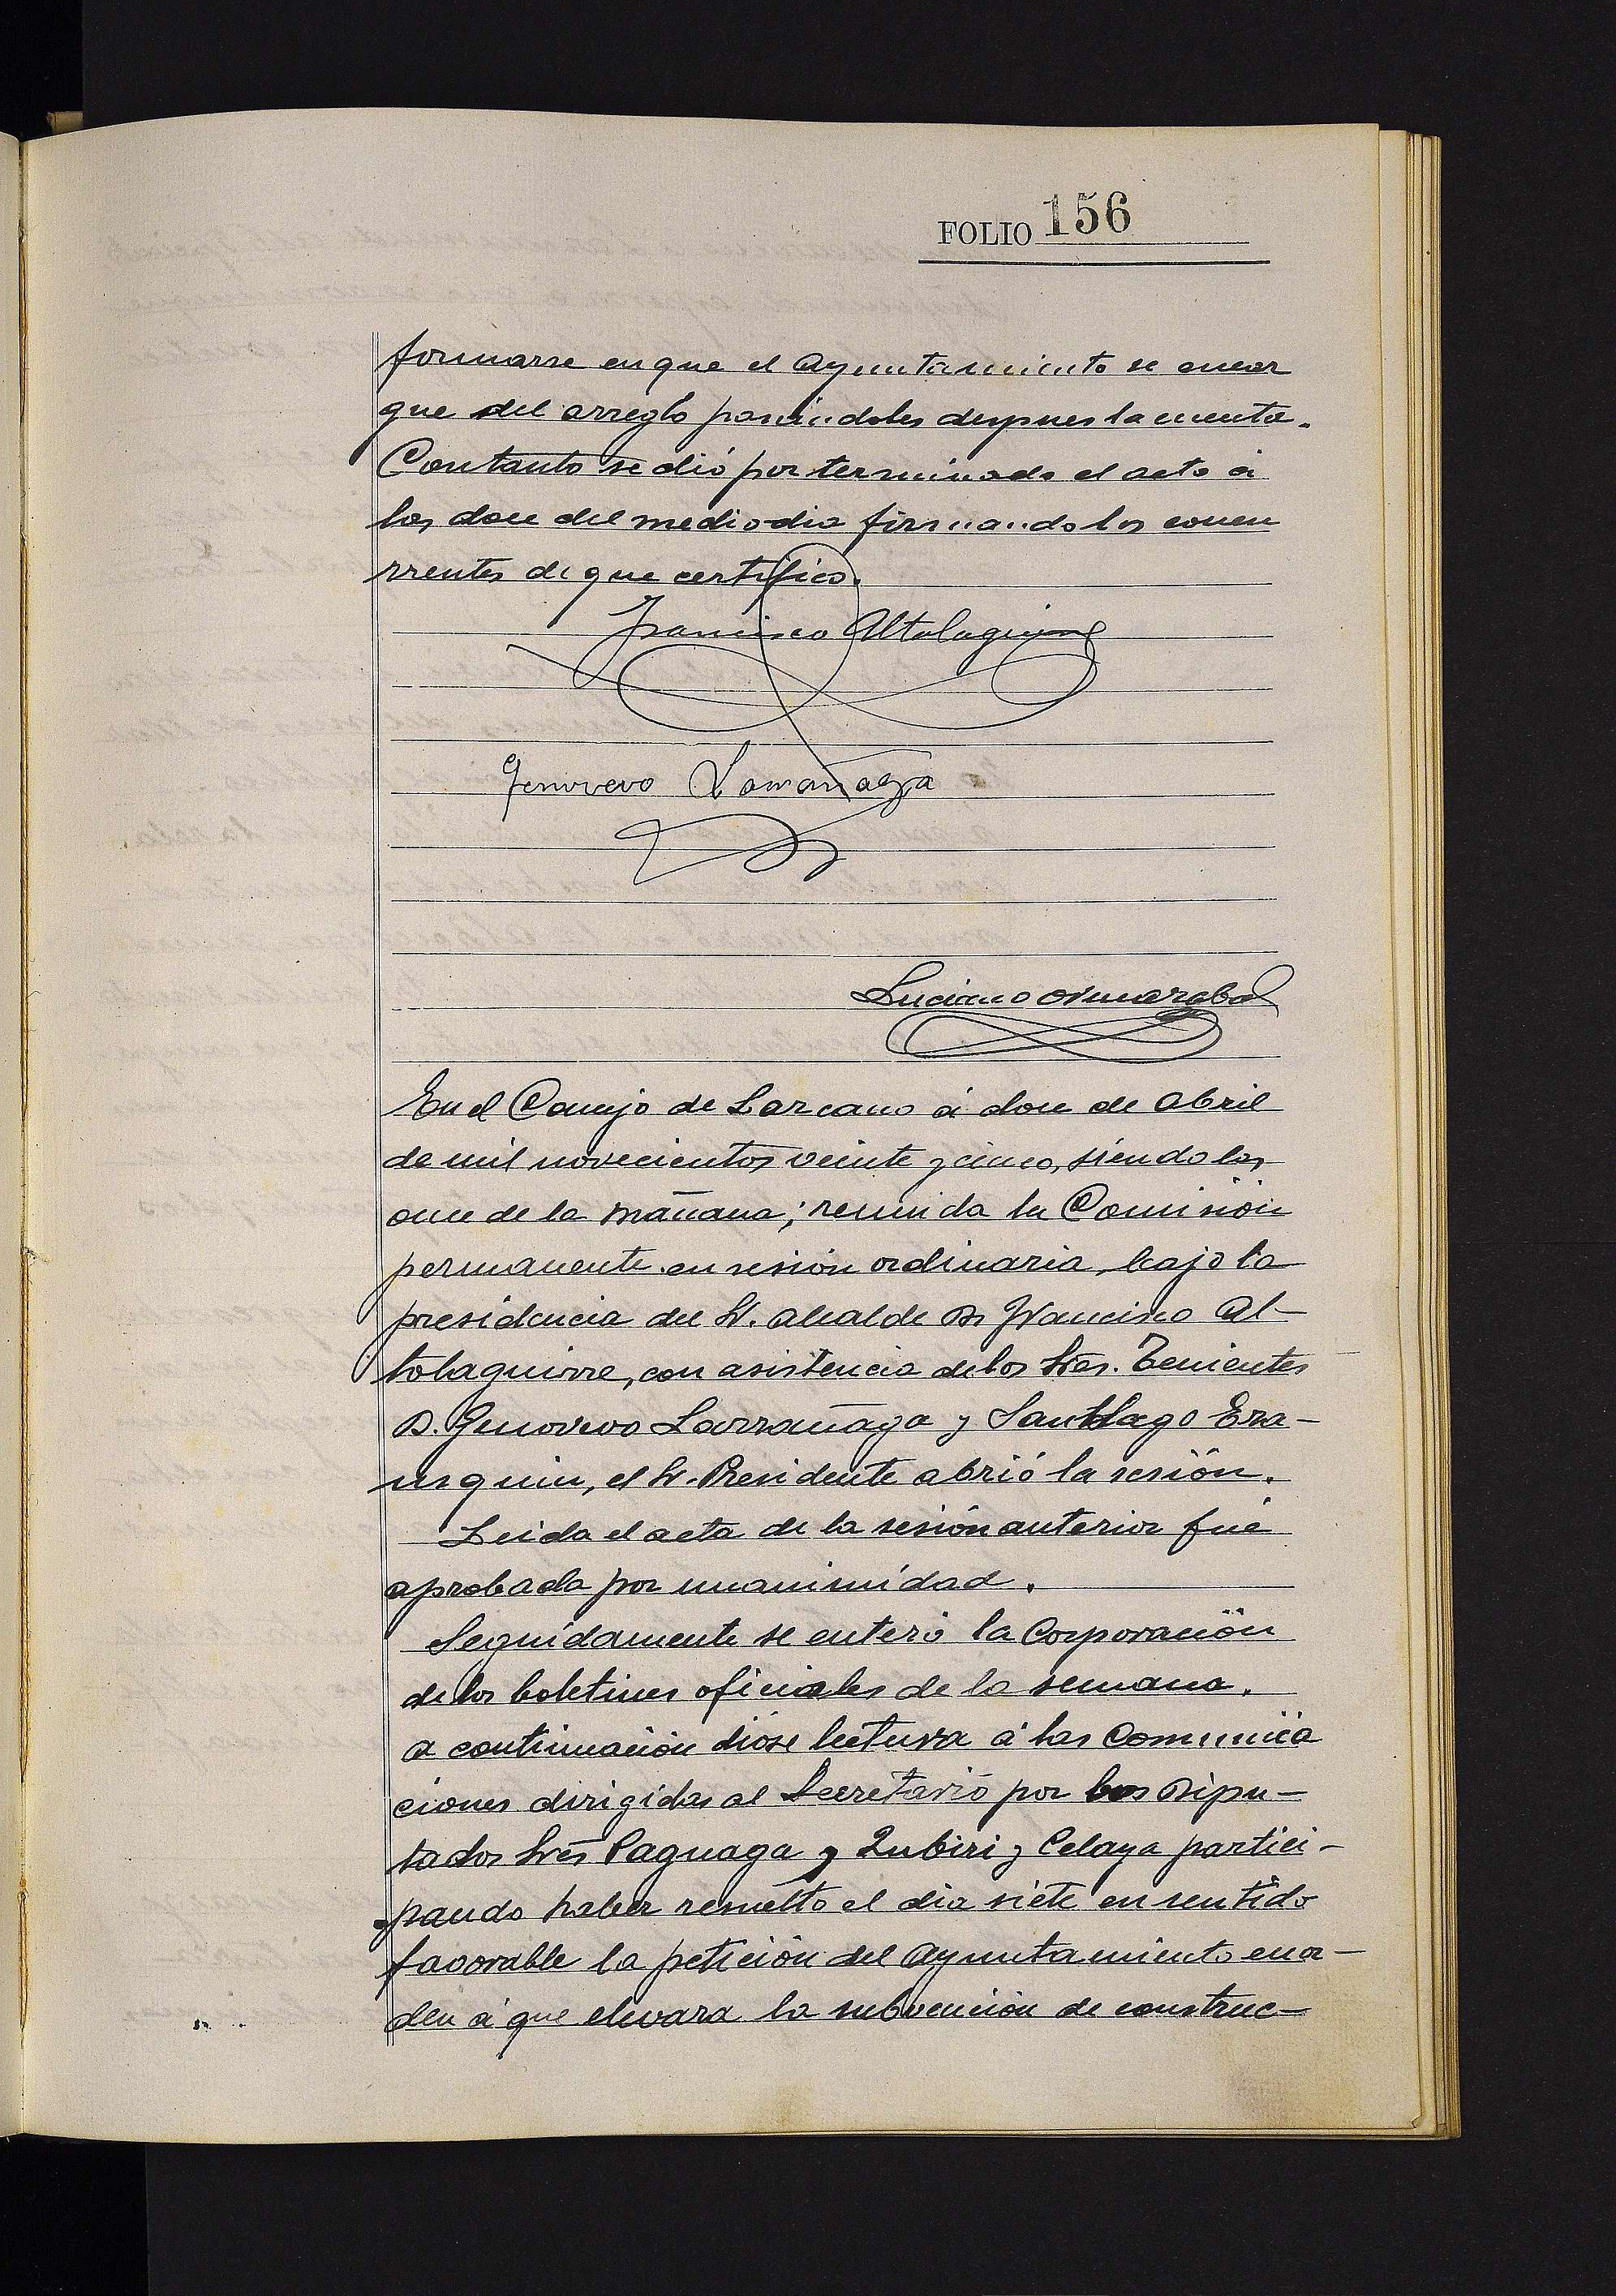 FOLIO 156
formarse en que el Ayuntamiento se encar
gue del arreglo pasándoles despues la cuenta.
Con tanto se dió por terminado el acto á
las doce del mediodia firmando los concu
rrentes de que certifico.
Francisco Altolaguirre
Genovevo Larrañaga
Luciano
En el Concejo de Lazcano á doce de Abril
de mil novecientos veinte y cinco, siendo las
once de la mañana; reunida la Comisión
permanente en sesión ordinaria, bajo la
presidencia del Sr. Alcalde Dn Francisco Al-
tolaguirre, con asistencia de los Sres. Tenientes
D. Genovevo Larrañaga y Santiago Era-
usquin, el Sr. Presidente abrió la sesión.
Leida el acta de la sesión anterior fué
aprobada por unanimidad.
Seguidamente se enteró la Corporación
de los boletines oficiales de la semana.
A continuación dióse lectura á las Comunica
ciones dirigidas al Secretario por los Dipu-
tados Sres Paguaga y Zubiri y Celaya partici-
pando haber resuelto el dia siete en sentido
favorable la petición del Ayuntamiento en or-
den á que elevara la subvención de construc-